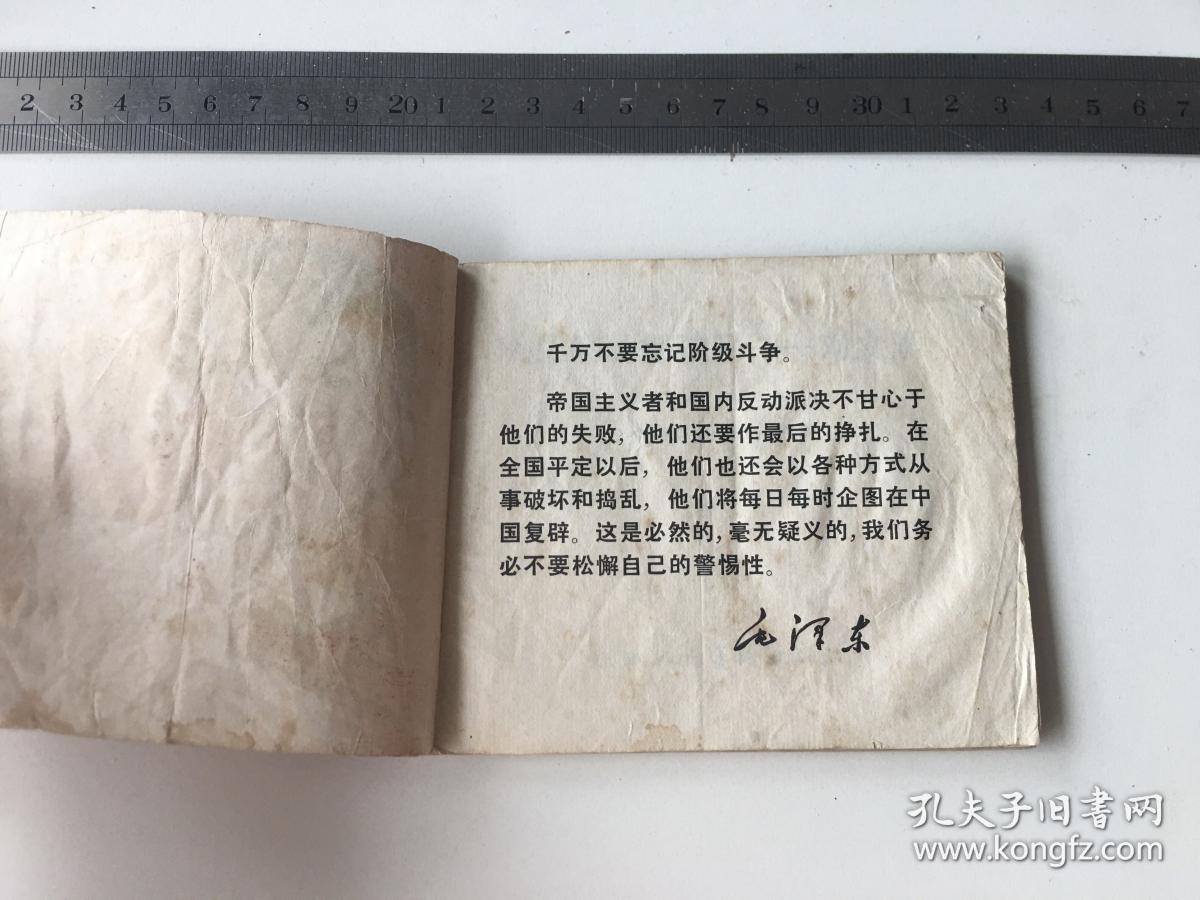 2 3 4 5 6 7 8 9 20 1 2 3 4 5 6 7 8 9 30 1 2 3 4 5 6 7
千万不要忘记阶级斗争。
帝国主义者和国内反动派决不甘心于
他们的失败，他们还要作最后的挣扎。在
全国平定以后，他们也还会以各种方式从
事破坏和捣乱，他们将每日每时企图在中
国复辟。这是必然的，毫无疑义的，我们务
必不要松懈自己的警惕性。
毛泽东
孔夫子旧书网
www.kongfz.com